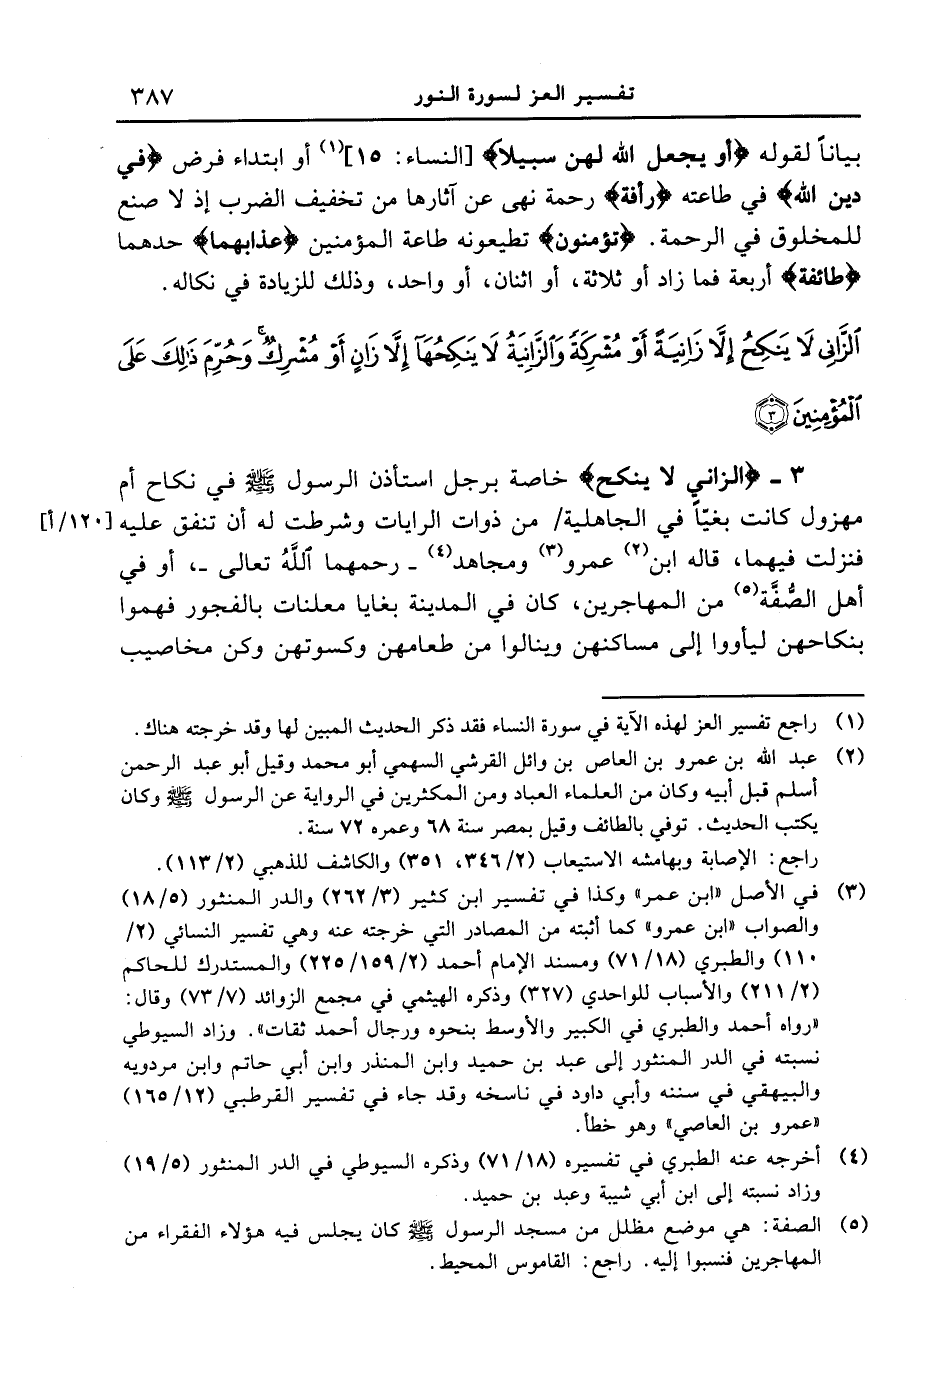 تفسير العز لسورة النور ٣٨٧
بياناً لقوله ﴿أو يجعل الله لهن سبيلا﴾ [النساء: ١٥](١) أو ابتداء فرض ﴿في
دين الله﴾ في طاعته ﴿رأفة﴾ رحمة نهى عن آثارها من تخفيف الضرب إذ لا صنع
للمخلوق في الرحمة. ﴿تؤمنون﴾ تطيعونه طاعة المؤمنين ﴿عذابهما﴾ حدهما
﴿طائفة﴾ أربعة فما زاد أو ثلاثة، أو اثنان، أو واحد، وذلك للزيادة في نكاله.
ٱلزَّانِى لَا يَنكِحُ إِلَّا زَانِيَةً أَوْ مُشْرِكَةً وَٱلزَّانِيَةُ لَا يَنكِحُهَآ إِلَّا زَانٍ أَوْ مُشْرِكٌ ۚ وَحُرِّمَ ذَٰلِكَ عَلَى
ٱلْمُؤْمِنِينَ ٣
٣ ـ ﴿الزاني لا ينكح﴾ خاصة برجل استأذن الرسول ﷺ في نكاح أم
مهزول كانت بغيّاً في الجاهلية/ من ذوات الرايات وشرطت له أن تنفق عليه [١٢٠/أ]
فنزلت فيهما، قاله ابن(٢) عمرو(٣) ومجاهد(٤) ـ رحمهما ٱللَّهُ تعالى ـ، أو في
أهل الصُّفَّة(٥) من المهاجرين، كان في المدينة بغايا معلنات بالفجور فهموا
بنكاحهن ليأووا إلى مساكنهن وينالوا من طعامهن وكسوتهن وكن مخاصيب
(١) راجع تفسير العز لهذه الآية في سورة النساء فقد ذكر الحديث المبين لها وقد خرجته هناك.
(٢) عبد الله بن عمرو بن العاص بن وائل القرشي السهمي أبو محمد وقيل أبو عبد الرحمن
أسلم قبل أبيه وكان من العلماء العباد ومن المكثرين في الرواية عن الرسول ﷺ وكان
يكتب الحديث. توفي بالطائف وقيل بمصر سنة ٦٨ وعمره ٧٢ سنة.
راجع: الإصابة وبهامشه الاستيعاب (٢/ ٣٤٦، ٣٥١) والكاشف للذهبي (٢/ ١١٣).
(٣) في الأصل «ابن عمر» وكذا في تفسير ابن كثير (٣/ ٢٦٢) والدر المنثور (٥/ ١٨)
والصواب «ابن عمرو» كما أثبته من المصادر التي خرجته عنه وهي تفسير النسائي (٢/
١١٠) والطبري (١٨/ ٧١) ومسند الإمام أحمد (٢/ ١٥٩/ ٢٢٥) والمستدرك للحاكم
(٢/ ٢١١) والأسباب للواحدي (٣٢٧) وذكره الهيثمي في مجمع الزوائد (٧/ ٧٣) وقال:
«رواه أحمد والطبري في الكبير والأوسط بنحوه ورجال أحمد ثقات». وزاد السيوطي
نسبته في الدر المنثور إلى عبد بن حميد وابن المنذر وابن أبي حاتم وابن مردويه
والبيهقي في سننه وأبي داود في ناسخه وقد جاء في تفسير القرطبي (١٢/ ١٦٥)
«عمرو بن العاصي» وهو خطأ.
(٤) أخرجه عنه الطبري في تفسيره (١٨/ ٧١) وذكره السيوطي في الدر المنثور (٥/ ١٩)
وزاد نسبته إلى ابن أبي شيبة وعبد بن حميد.
(٥) الصفة: هي موضع مظلل من مسجد الرسول ﷺ كان يجلس فيه هؤلاء الفقراء من
المهاجرين فنسبوا إليه. راجع: القاموس المحيط.